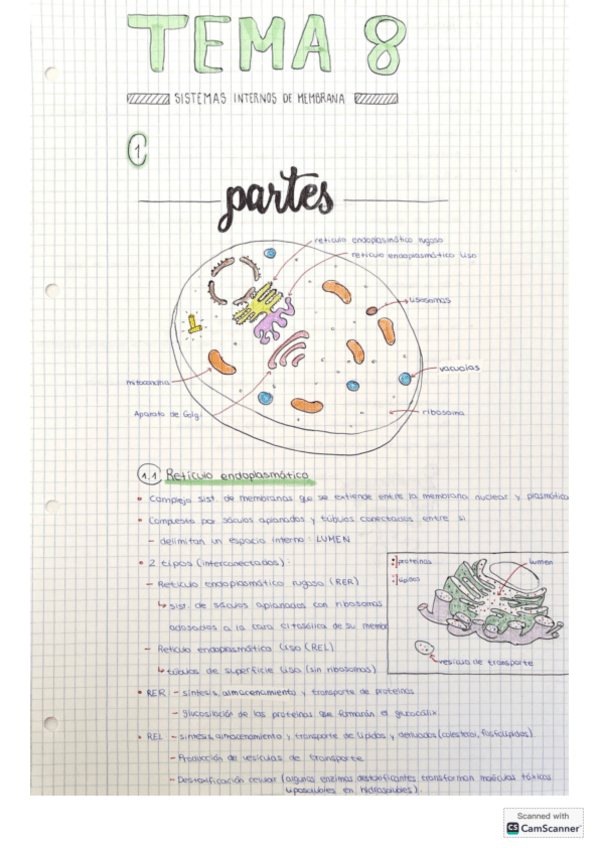 TEMA 8
SISTEMAS INTERNOS DE MEMBRANA
1
partes
retículo endoplasmático rugoso
retículo endoplasmático liso
lisosomas
vacuolas
mitocondria
Aparato de Golgi
ribosoma
1.1 Retículo endoplasmático
• Complejo sist. de membranas que se extiende entre la membrana nuclear y plasmática
• Compuesto por sáculos aplanados y túbulos conectados entre sí
– delimitan un espacio interno: LUMEN
• 2 tipos (interconectados):
– Retículo endoplasmático rugoso (RER)
↳ sist. de sáculos aplanados con ribosomas
adosados a la cara citosólica de su membr
– Retículo endoplasmático liso (REL)
↳ túbulos de superficie lisa (sin ribosomas)
proteínas
lípidos
lumen
vesícula de transporte
• RER – síntesis, almacenamiento y transporte de proteínas
– glucosilación de las proteínas que formarán el glucocálix
• REL – síntesis, almacenamiento y transporte de lípidos y derivados (colesterol, fosfolípidos).
– Producción de vesículas de transporte
– Destoxificación celular (algunas enzimas destoxificantes transforman moléculas tóxicas
liposolubles en hidrosolubles).
Scanned with
CS CamScanner